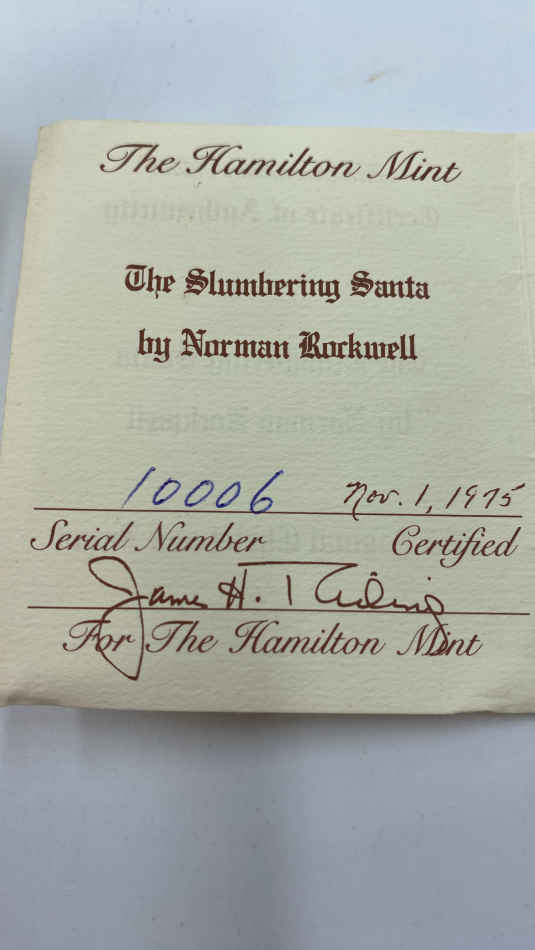 The Hamilton Mint
The Slumbering Santa
by Norman Rockwell
10006 Nov. 1, 1975
Serial Number Certified
James H.
For The Hamilton Mint